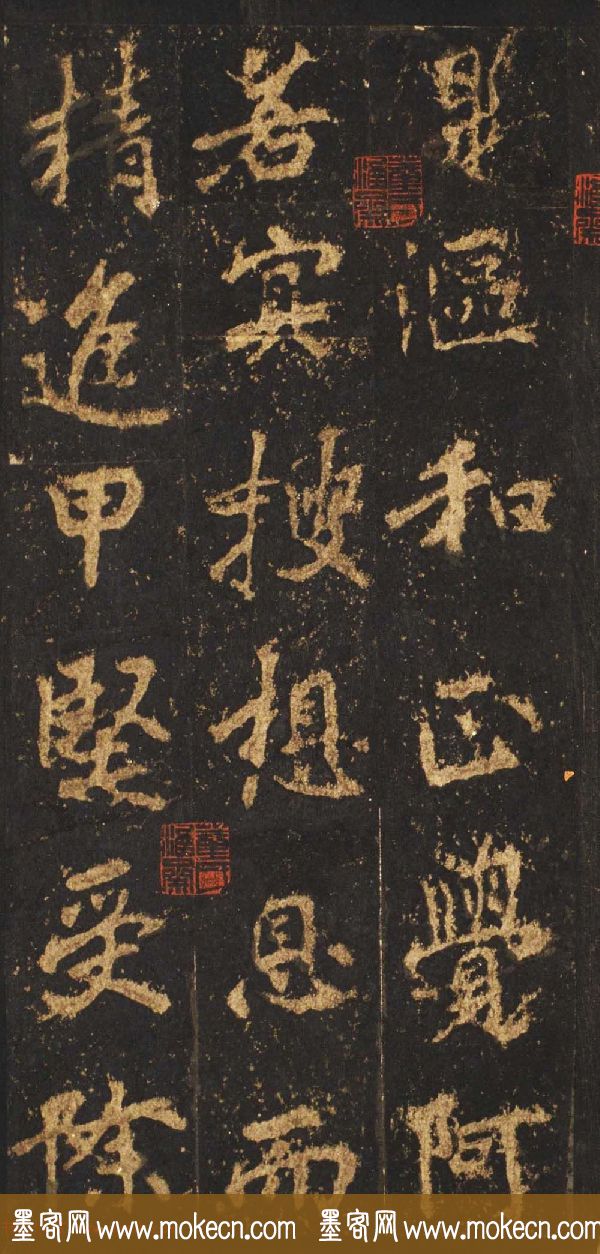 是漚和正覺阿
若冥搜想息而
精進甲堅受除
墨客网 www.mokecn.com 墨客网 www.mokecn.com